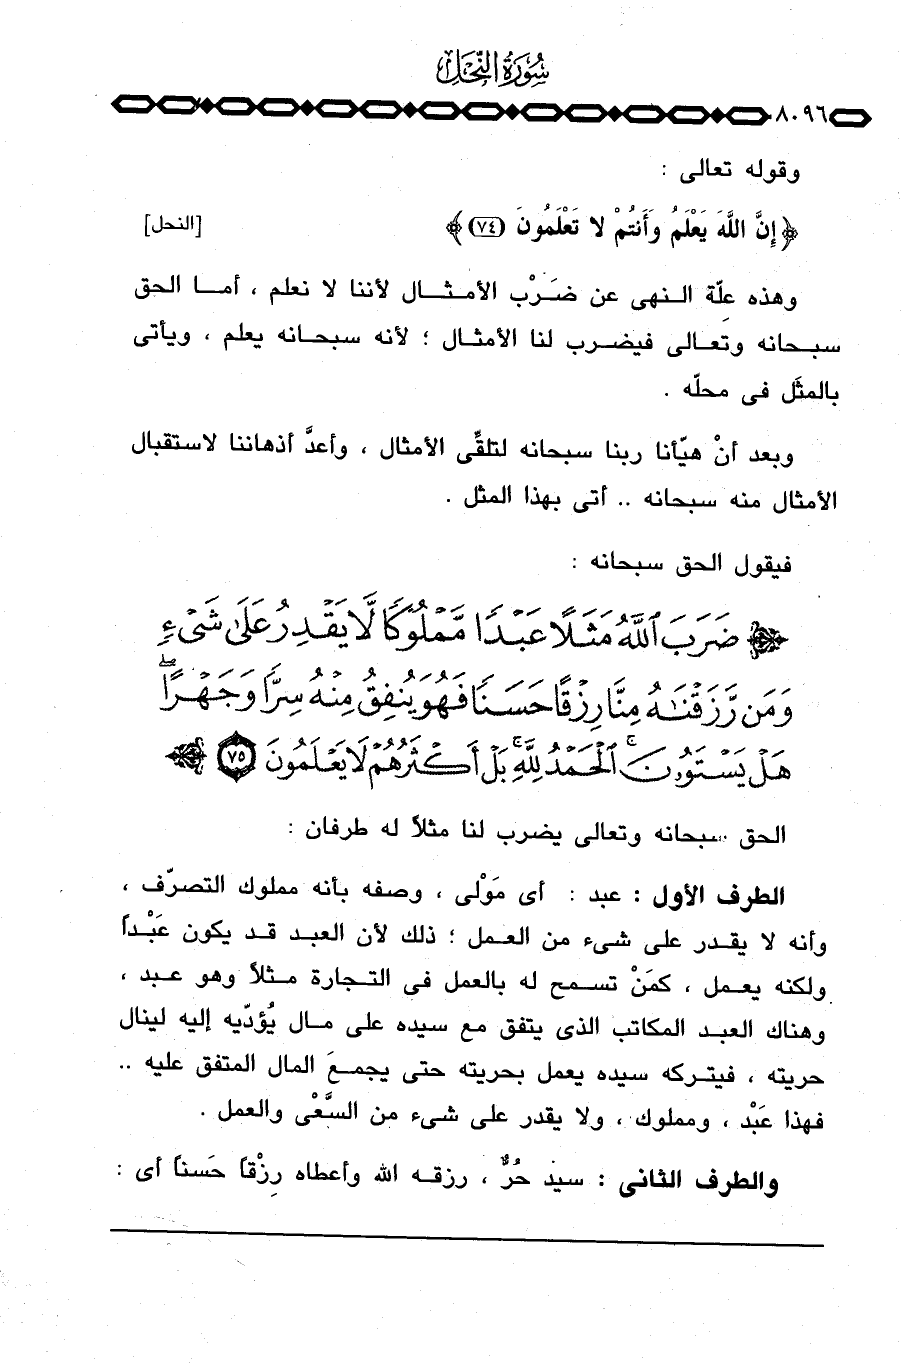 سُورَةُ النَّحْلِ
٨٠٩٦
وقوله تعالى :
﴿ إِنَّ اللَّهَ يَعْلَمُ وَأَنتُمْ لا تَعْلَمُونَ (٧٤) ﴾ [النحل]
وهذه علّة النهى عن ضَرْب الأمثال لأننا لا نعلم ، أما الحق
سبحانه وتعالى فيضرب لنا الأمثال ؛ لأنه سبحانه يعلم ، ويأتى
بالمثَل فى محلّه .
وبعد أنْ هيّأنا ربنا سبحانه لتلقِّى الأمثال ، وأعدَّ أذهاننا لاستقبال
الأمثال منه سبحانه .. أتى بهذا المثل .
فيقول الحق سبحانه :
﴿ ضَرَبَ ٱللَّهُ مَثَلًا عَبْدًا مَّمْلُوكًا لَّا يَقْدِرُ عَلَىٰ شَىْءٍ
وَمَن رَّزَقْنَٰهُ مِنَّا رِزْقًا حَسَنًا فَهُوَ يُنفِقُ مِنْهُ سِرًّا وَجَهْرًا ۖ
هَلْ يَسْتَوُۥنَ ۚ ٱلْحَمْدُ لِلَّهِ ۚ بَلْ أَكْثَرُهُمْ لَا يَعْلَمُونَ ٧٥ ﴾
الحق سبحانه وتعالى يضرب لنا مثلاً له طرفان :
الطرف الأول : عبد : أى مَوْلى ، وصفه بأنه مملوك التصرّف ،
وأنه لا يقدر على شىء من العمل ؛ ذلك لأن العبد قد يكون عَبْداً
ولكنه يعمل ، كمَنْ تسمح له بالعمل فى التجارة مثلاً وهو عبد ،
وهناك العبد المكاتب الذى يتفق مع سيده على مال يُؤدّيه إليه لينال
حريته ، فيتركه سيده يعمل بحريته حتى يجمعَ المال المتفق عليه ..
فهذا عَبْد ، ومملوك ، ولا يقدر على شىء من السَّعْى والعمل .
والطرف الثانى : سيد حُرٌّ ، رزقه الله وأعطاه رزْقاً حَسناً أى :